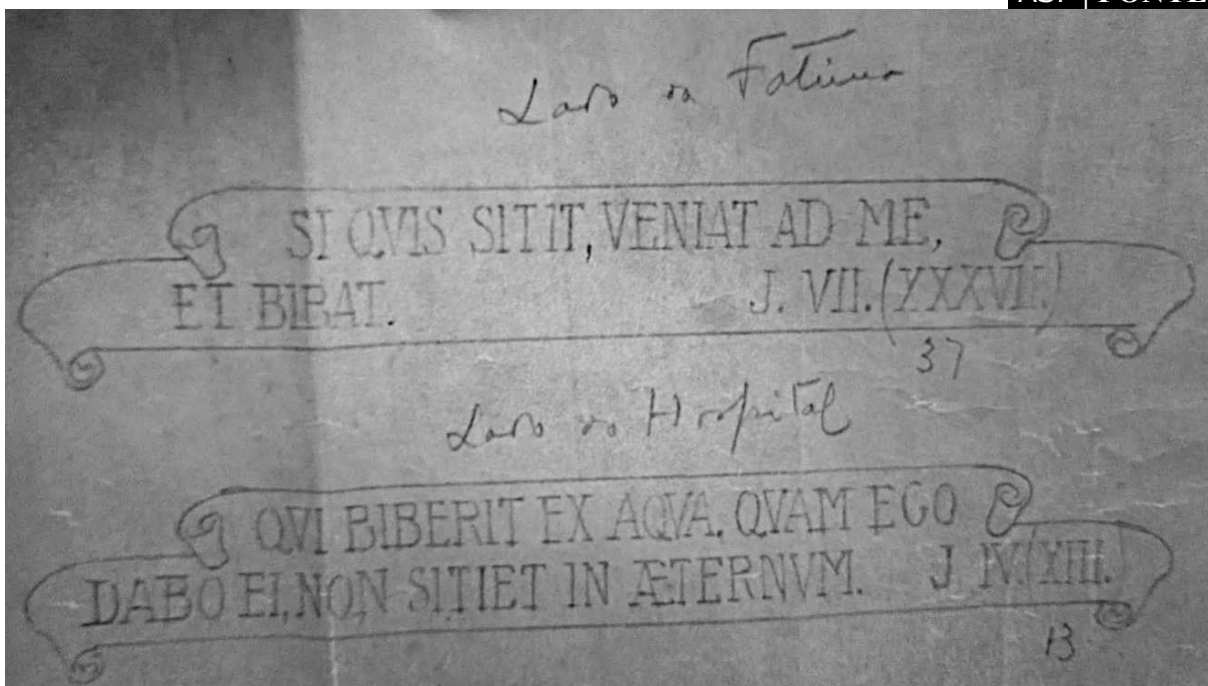 Lado da Fátima
SI QVIS SITIT, VENIAT AD ME,
ET BIBAT. J. VII. (XXXVII.)
37
Lado do Hospital
QVI BIBERIT EX AQVA. QVAM EGO
DABO EI, NON SITIET IN ÆTERNVM. J. IV. (XIII.)
13